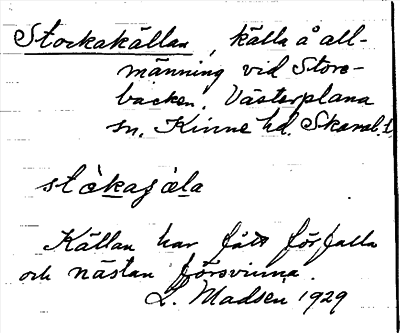 Stockakällan, källa å all-
männing vid Store-
backen. Västerplana
sn, Kinne hd. Skarab. l.
stòkaʂɑ̀la
Källan har fått förfalla
och nästan försvinna.
L. Madsén 1929